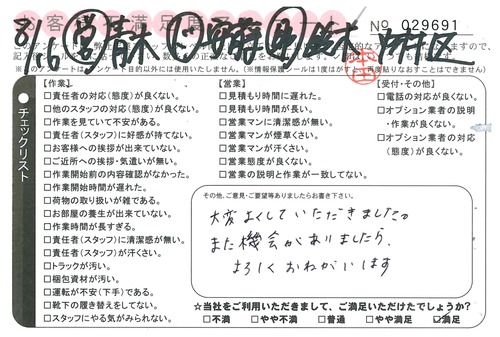 No 029691
8/16 青木 鈴木 中村区
チェックリスト
【作業】
□責任者の対応(態度)が良くない。
□他のスタッフの対応(態度)が良くない。
□作業を見ていて不安がある。
□責任者(スタッフ)に好感が持てない。
□お客様への挨拶が出来ていない。
□ご近所への挨拶・気遣いが無い。
□作業開始前の内容確認がなかった。
□作業開始時間が遅れた。
□荷物の取り扱いが雑である。
□お部屋の養生が出来ていない。
□作業時間が長すぎる。
□責任者(スタッフ)に清潔感が無い。
□責任者(スタッフ)が汗くさい。
□トラックが汚い。
□梱包資材が汚い。
□運転が不安(下手)である。
□靴下の履き替えをしてない。
□スタッフにやる気がみられない。
【営業】
□見積もり時間に遅れた。
□見積もり時間が長い。
□営業マンに清潔感が無い。
□営業マンが煙草くさい。
□営業マンが汗くさい。
□営業態度が良くない。
□営業の説明と作業が一致してない。
【受付・その他】
□電話の対応が良くない。
□オプション業者の説明
・作業が良くない。
□オプション業者の対応
(態度)が良くない。
その他、ご意見・ご要望等ありましたらお書き下さい。
大変よくしていただきました。
また機会がありましたら、
よろしくおねがいします
☆当社をご利用いただきまして、ご満足いただけたでしょうか?
□不満 □やや不満 □普通 □やや満足 ☑満足